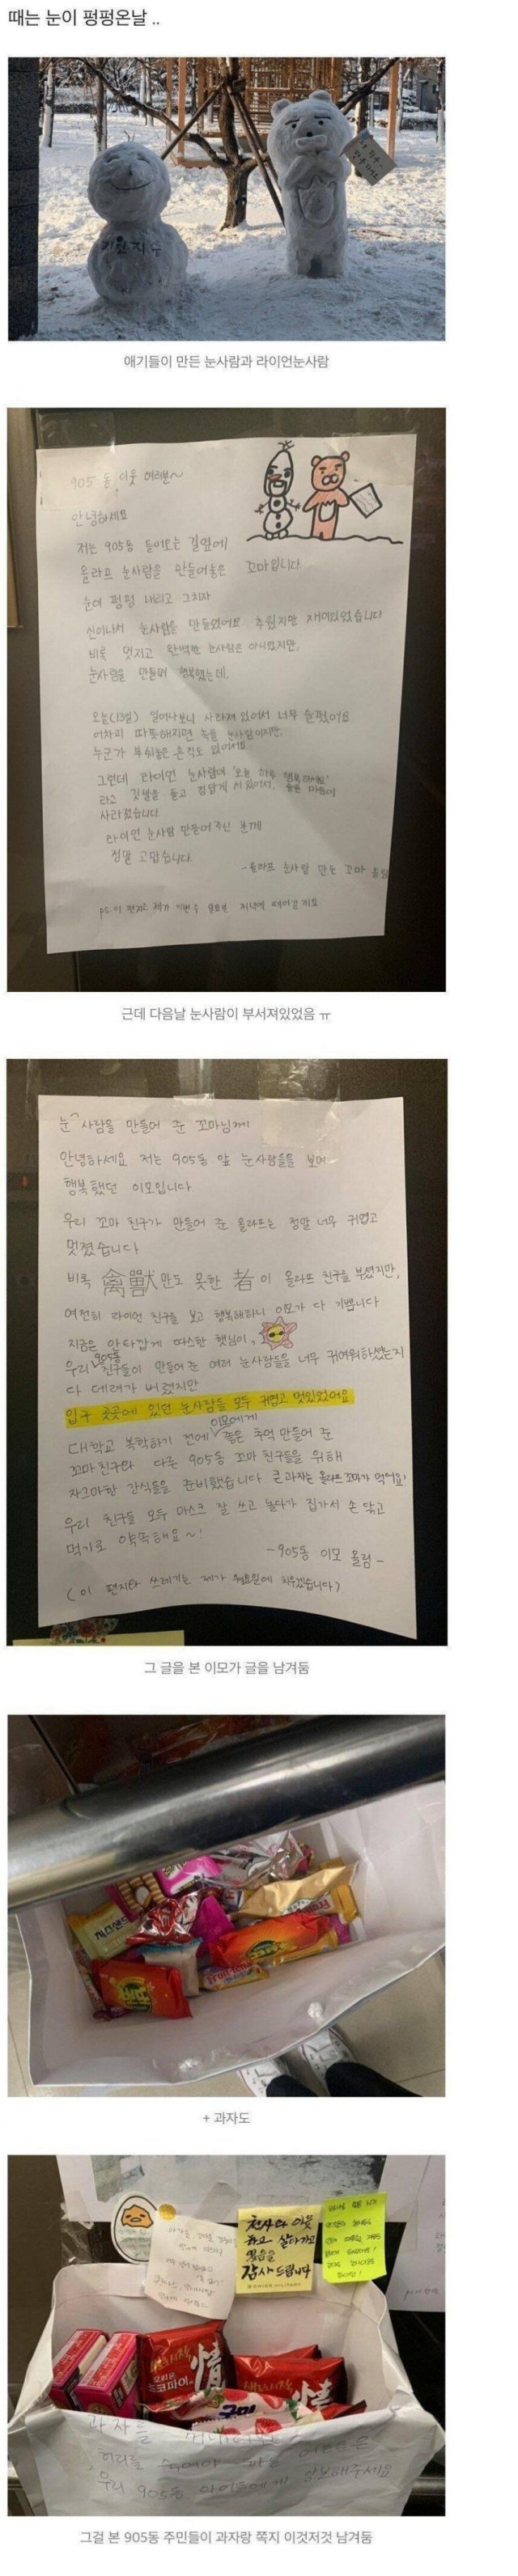 때는 눈이 펑펑온날 ..
애기들이 만든 눈사람과 라이언눈사람
905동 이웃 여러분~
안녕하세요
저는 905동 들어오는 길옆에
올라프 눈사람을 만들어놓은 꼬마입니다.
눈이 펑펑 내리고 그치자
신이나서 눈사람을 만들었어요 추웠지만 재미있었습니다
비록 멋지고 완벽한 눈사람은 아니었지만,
눈사람을 만들며 행복했는데,
오늘(13일) 일어나보니 사라져 있어서 너무 슬펐어요
어차피 따뜻해지면 녹을 눈사람이지만
누군가 부숴놓은 흔적도 있어서요
그런데 라이언 눈사람이 '오늘 하루 행복하세요'
라고 깃발을 들고 정답게 서 있어서, 슬픈 마음이
사라졌습니다.
라이언 눈사람 만들어주신 분께
정말 고맙습니다.
-올라프 눈사람 만든 꼬마 올림
ps.이 편지는 제가 이번주 일요일 저녁에 떼어갈게요
근데 다음날 눈사람이 부서져있었음 ㅠ
눈사람을 만들어 준 꼬마님께
안녕하세요 저는 905동 앞 눈사람들을 보며
행복했던 이모입니다
우리 꼬마 친구가 만들어 준 올라프는 정말 너무 귀엽고
멋졌습니다
비록 禽獸만도 못한 者이 올라프 친구를 부셨지만,
여전히 라이언 친구를 보고 행복해하니 이모가 다 기쁩니다
지금은 안타깝게 따스한 햇님이,
우리 905동 친구들이 만들어 준 여러 눈사람들을 너무 귀여워하셨는지
다 데려가 버렸지만
입구 곳곳에 있던 눈사람들 모두 귀엽고 멋있었어요
대학교 복학하기 전에 이모에게 좋은 추억 만들어 준
꼬마친구와 다른 905동 꼬마 친구들을 위해
자그마한 간식들을 준비했습니다 큰과자는 올라프꼬마가 먹어요!
우리 친구들 모두 마스크 잘 쓰고 놀다가 집가서 손 닦고
먹기로 약속해요~!
-905동 이모 올림-
(이 편지와 쓰레기는 제가 월요일에 치우겠습니다)
그 글을 본 이모가 글을 남겨둠
+ 과자도
천사와 이웃
하고 살다가고
있음을
감사드립니다
오리온
초코파이 情
구미
우리 905동 아이들에게 양보해주세요
그걸 본 905동 주민들이 과자랑 쪽지 이것저것 남겨둠